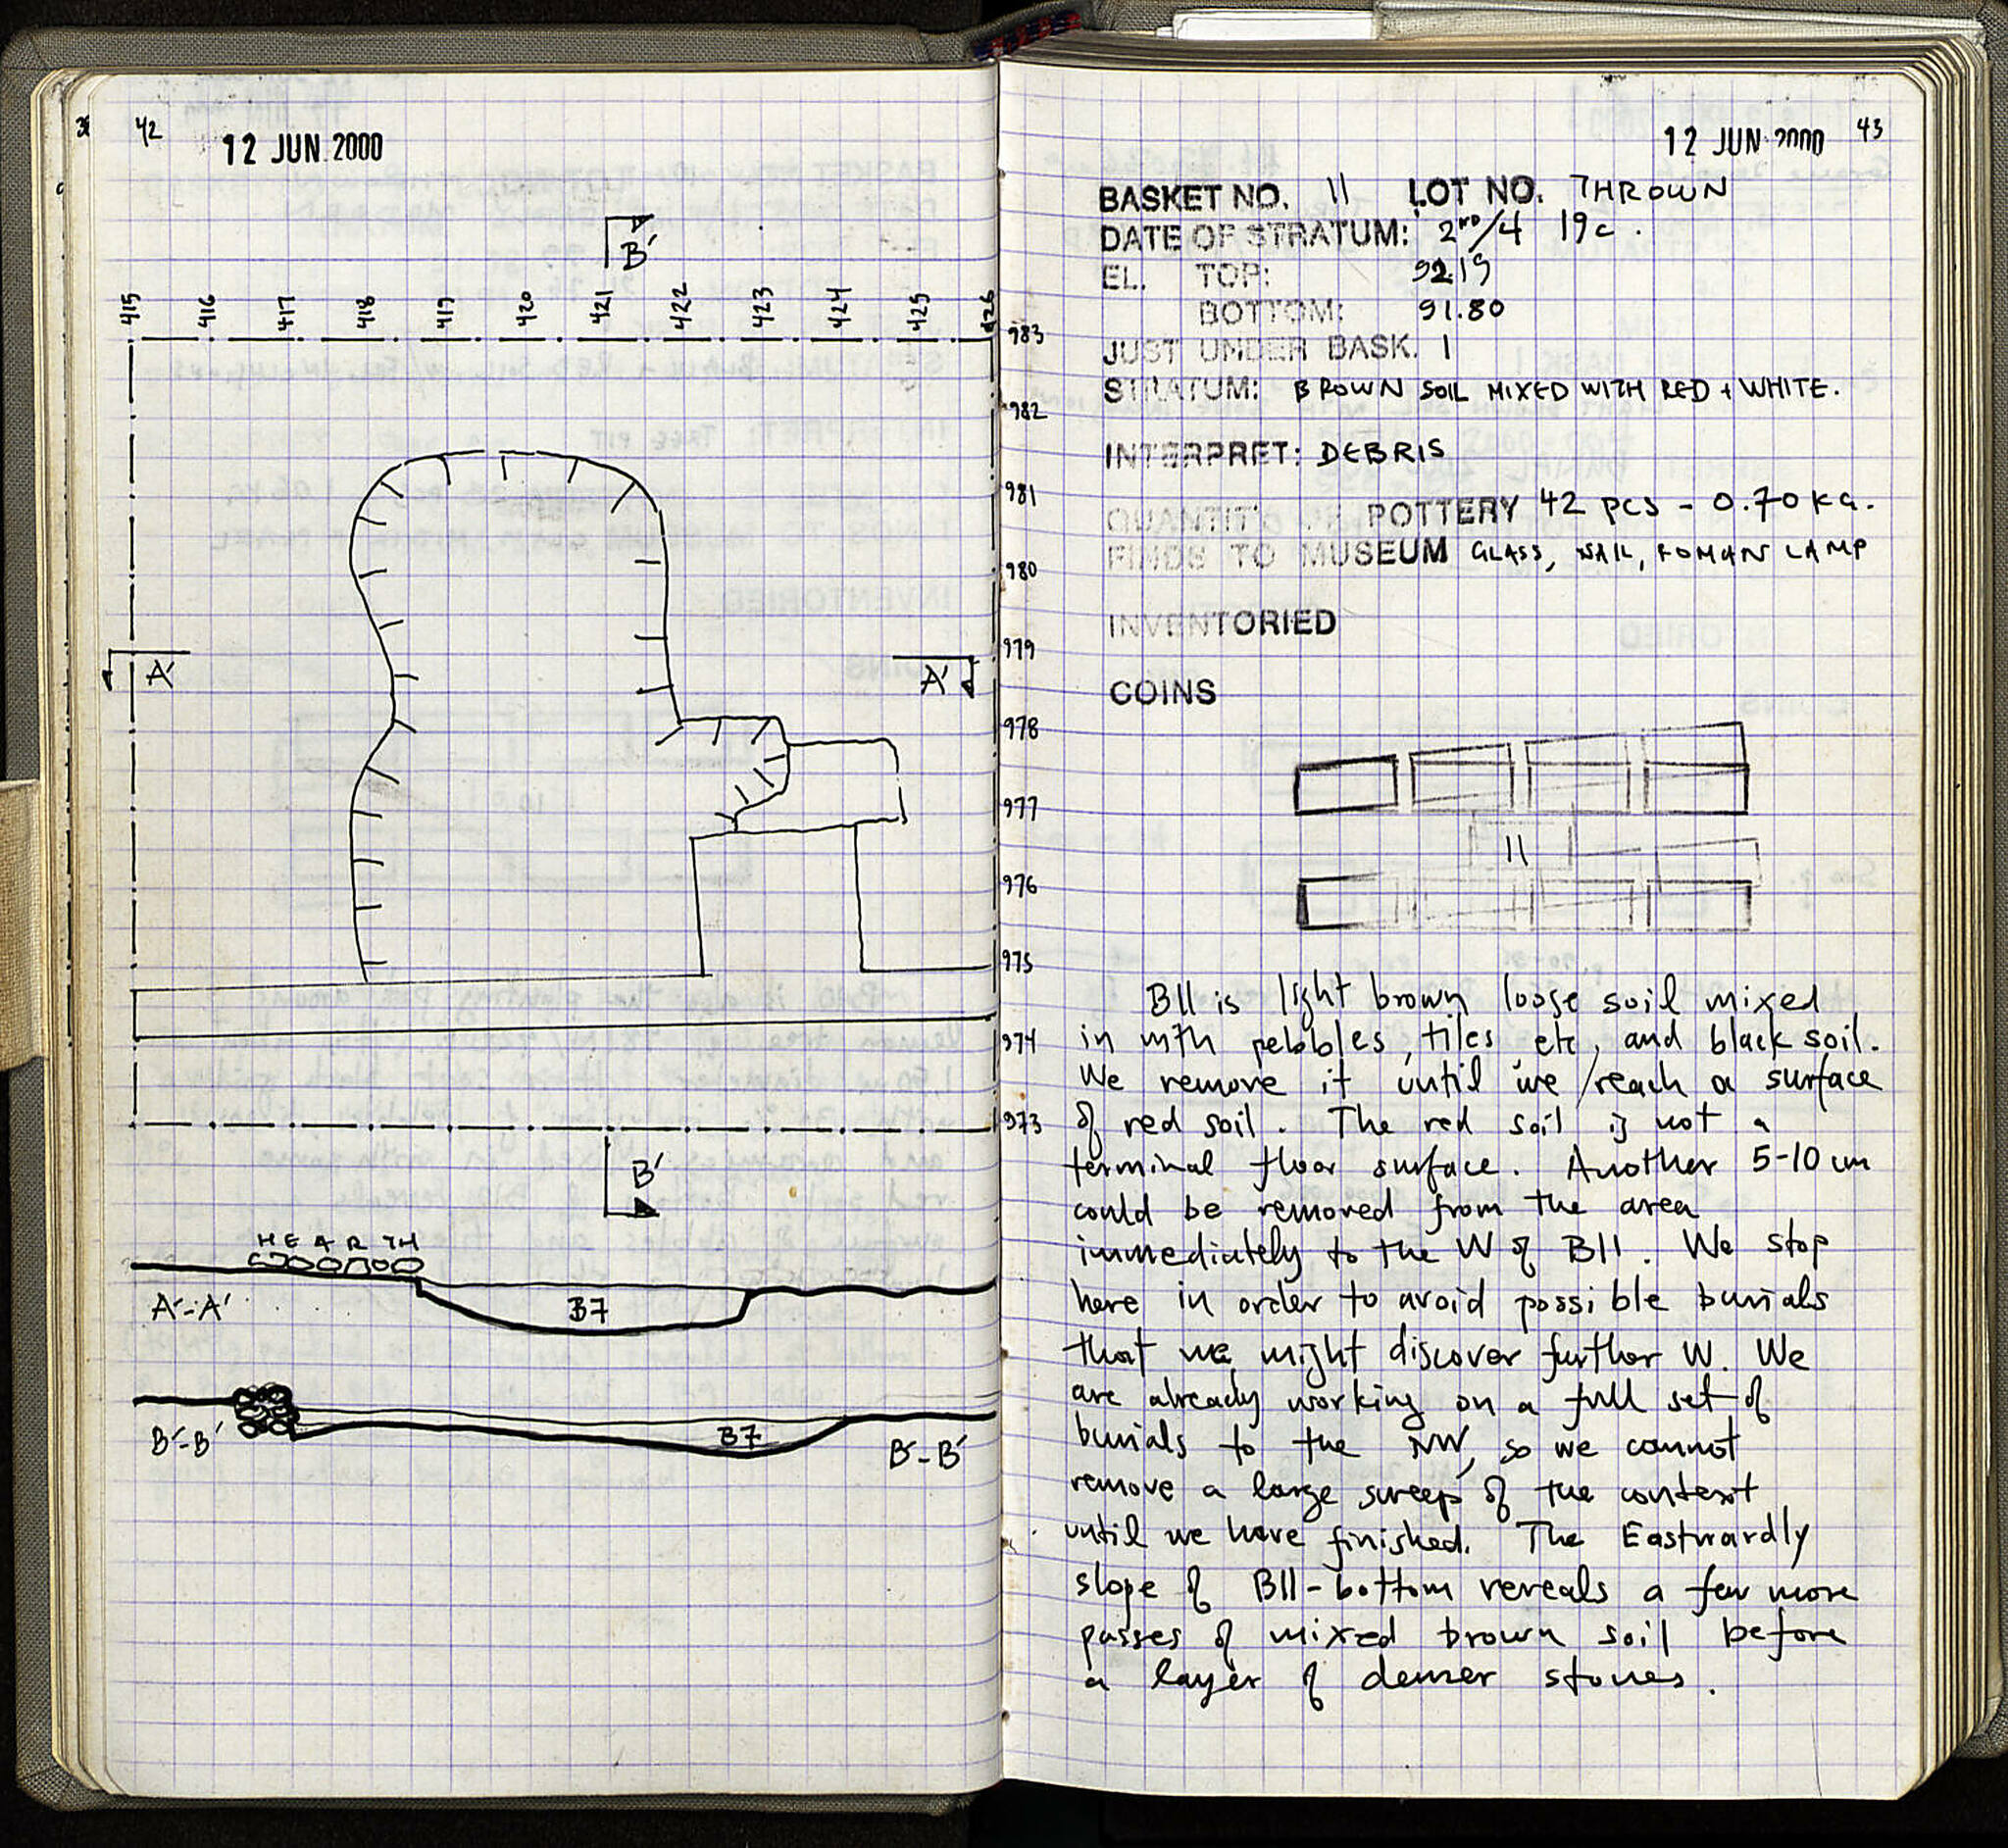 42
12 JUN 2000
B'
415 416 417 418 419 420 421 422 423 424 425 426
983
982
981
980
979
A' A'
978
977
976
975
974
973
B'
HEARTH
A'-A' B7
B'-B' B7 B'-B'
12 JUN 2000 43
BASKET NO. 11 LOT NO. THROWN
DATE OF STRATUM: 2ND/4 19c.
EL. TOP: 92.19
BOTTOM: 91.80
JUST UNDER BASK. 1
STRATUM: BROWN SOIL MIXED WITH RED + WHITE.
INTERPRET: DEBRIS
QUANTITY OF POTTERY 42 PCS - 0.70 KG.
FINDS TO MUSEUM GLASS, NAIL, ROMAN LAMP
INVENTORIED
COINS
11
B11 is light brown loose soil mixed
in with pebbles, tiles etc, and black soil.
We remove it until we reach a surface
of red soil. The red soil is not a
terminal floor surface. Another 5-10 cm
could be removed from the area
immediately to the W of B11. We stop
here in order to avoid possible burials
that we might discover further W. We
are already working on a full set of
burials to the NW, so we cannot
remove a large sweep of the context
until we have finished. The Eastwardly
slope of B11-bottom reveals a few more
passes of mixed brown soil before
a layer of denser stones.